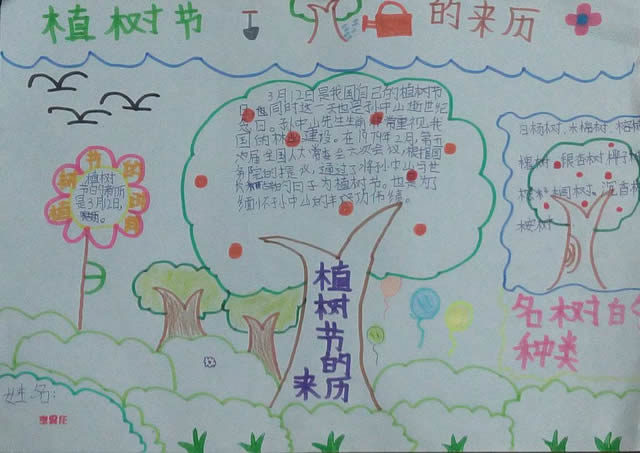 植树节
的来历
3月12日是我国自己的植树节
日,也同时这一天也是孙中山逝世纪
念日。孙中山先生生前
重视我
国的林业建设。在1979年2月,第五
届全国人大常委会六次会议,根据国
务院的提议,通过了将孙中山与世
的日子为植树节。也是为了
缅怀孙中山的丰功伟绩。
植树节的时间
植树
节日的时历
是3月12日,
植
树
节
的
来历
白杨树、水梅树、梧
树、银杏树 椰子
树、桐树、沉香
桉树
名树的
种类
姓名: